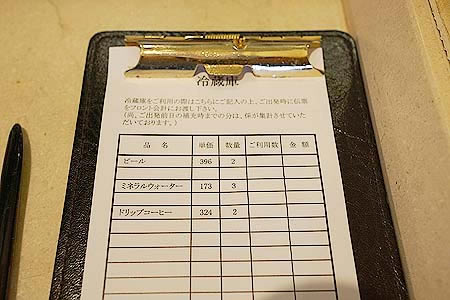 冷蔵庫
冷蔵庫をご利用の際はこちらにご記入の上、ご出発時に伝票
をフロント会計にお渡し下さい。
(尚、ご出発前日の補充時までの分は、係が集計させていた
だいております。)
品 名 単価 数量 ご利用数 金 額
ビール 396 2
ミネラルウォーター 173 3
ドリップコーヒー 324 2